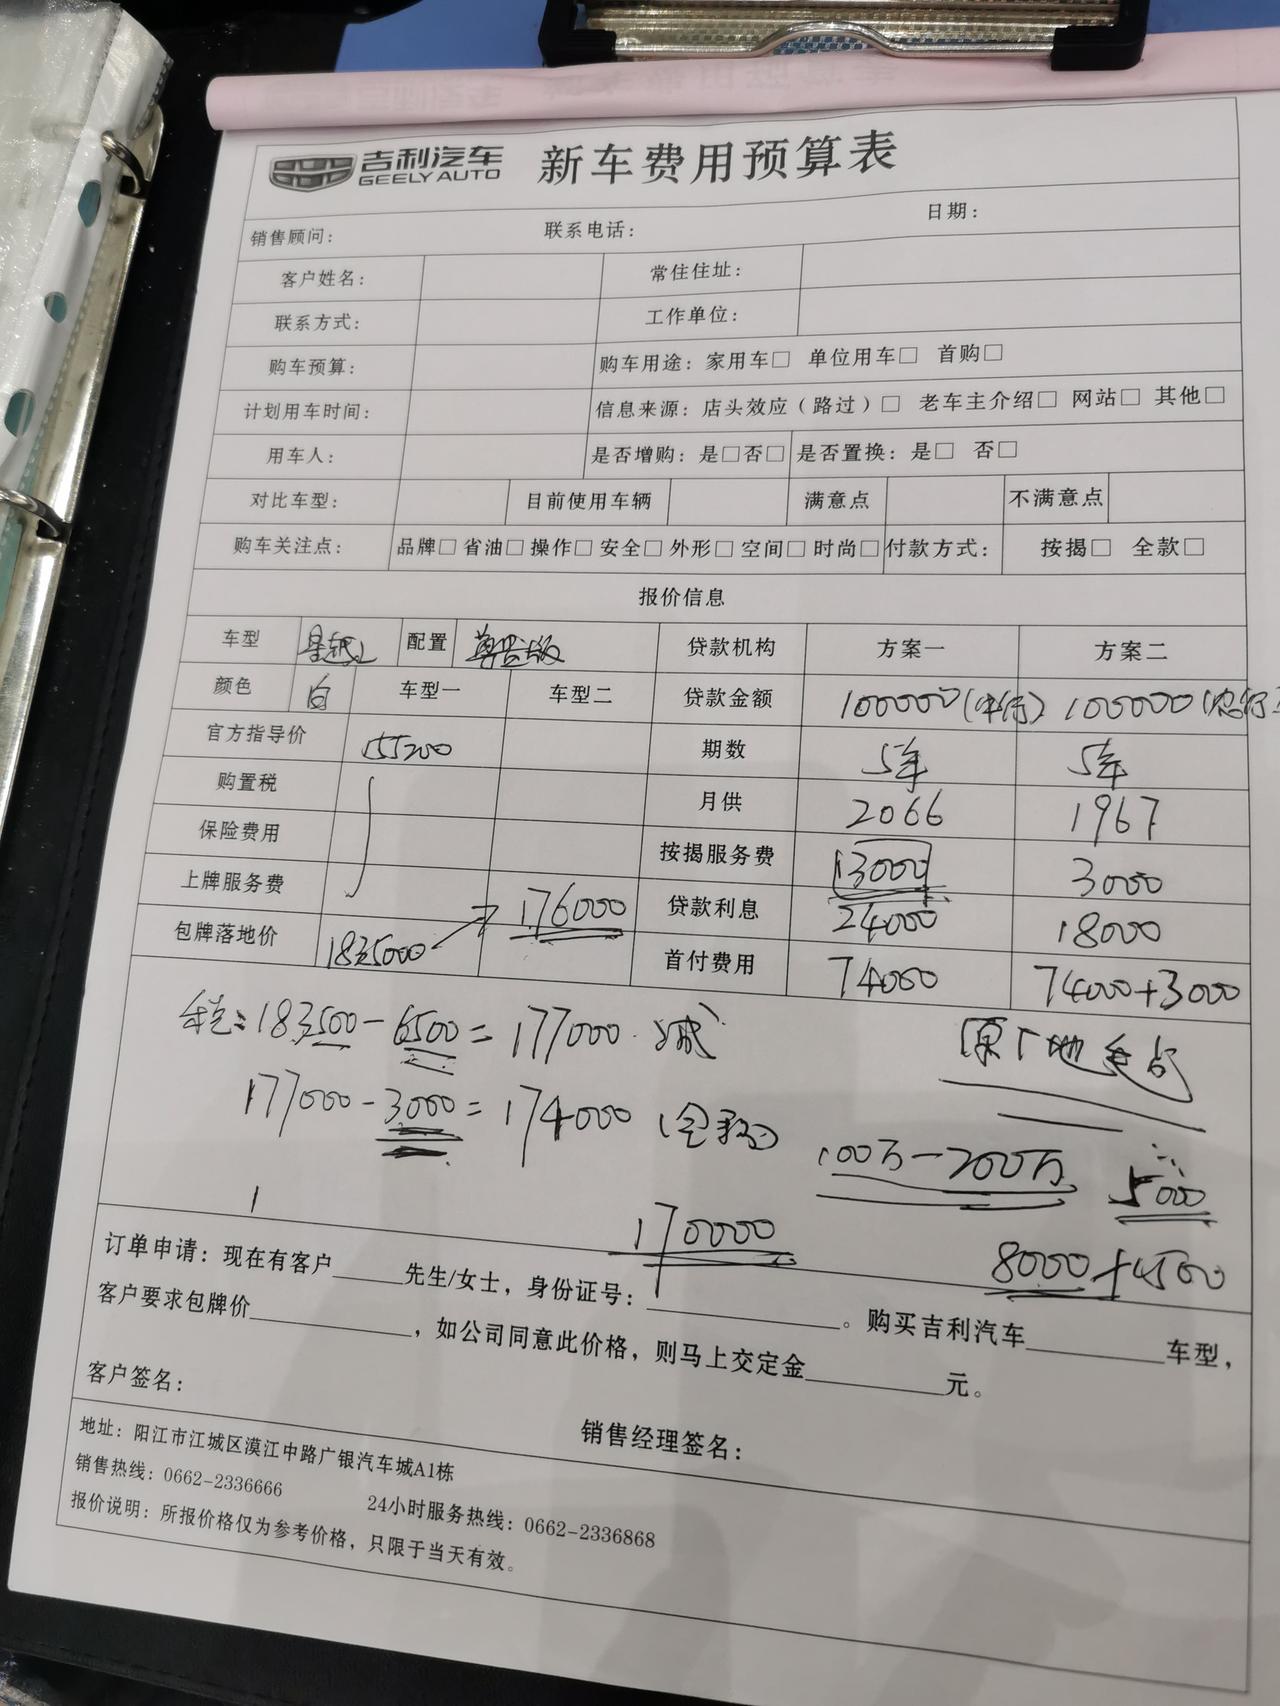 吉利汽车
GEELY AUTO
新车费用预算表
销售顾问： 联系电话： 日期：
客户姓名： 常住住址：
联系方式： 工作单位：
购车预算： 购车用途：家用车□ 单位用车□ 首购□
计划用车时间： 信息来源：店头效应（路过）□ 老车主介绍□ 网站□ 其他□
用车人： 是否增购：是□否□ 是否置换：是□ 否□
对比车型： 目前使用车辆 满意点 不满意点
购车关注点： 品牌□ 省油□ 操作□ 安全□ 外形□ 空间□ 时尚□ 付款方式： 按揭□ 全款□
报价信息
车型 星越L 配置 尊贵版 贷款机构 方案一 方案二
颜色 白 车型一 车型二 贷款金额 100000 100000
官方指导价 155200 期数 5年 5年
购置税 月供 2066 1967
保险费用 按揭服务费 13000 3000
上牌服务费 176000 贷款利息 24000 18000
包牌落地价 1835000 首付费用 74000 74000+3000
税：183500-6500=177000 减
177000-3000=174000
100万-200万 5000
170000
8000+4500
订单申请：现在有客户______先生/女士，身份证号：______。购买吉利汽车______车型，
客户要求包牌价______，如公司同意此价格，则马上交定金______元。
客户签名： 销售经理签名：
地址：阳江市江城区漠江中路广银汽车城A1栋
销售热线：0662-2336666 24小时服务热线：0662-2336868
报价说明：所报价格仅为参考价格，只限于当天有效。